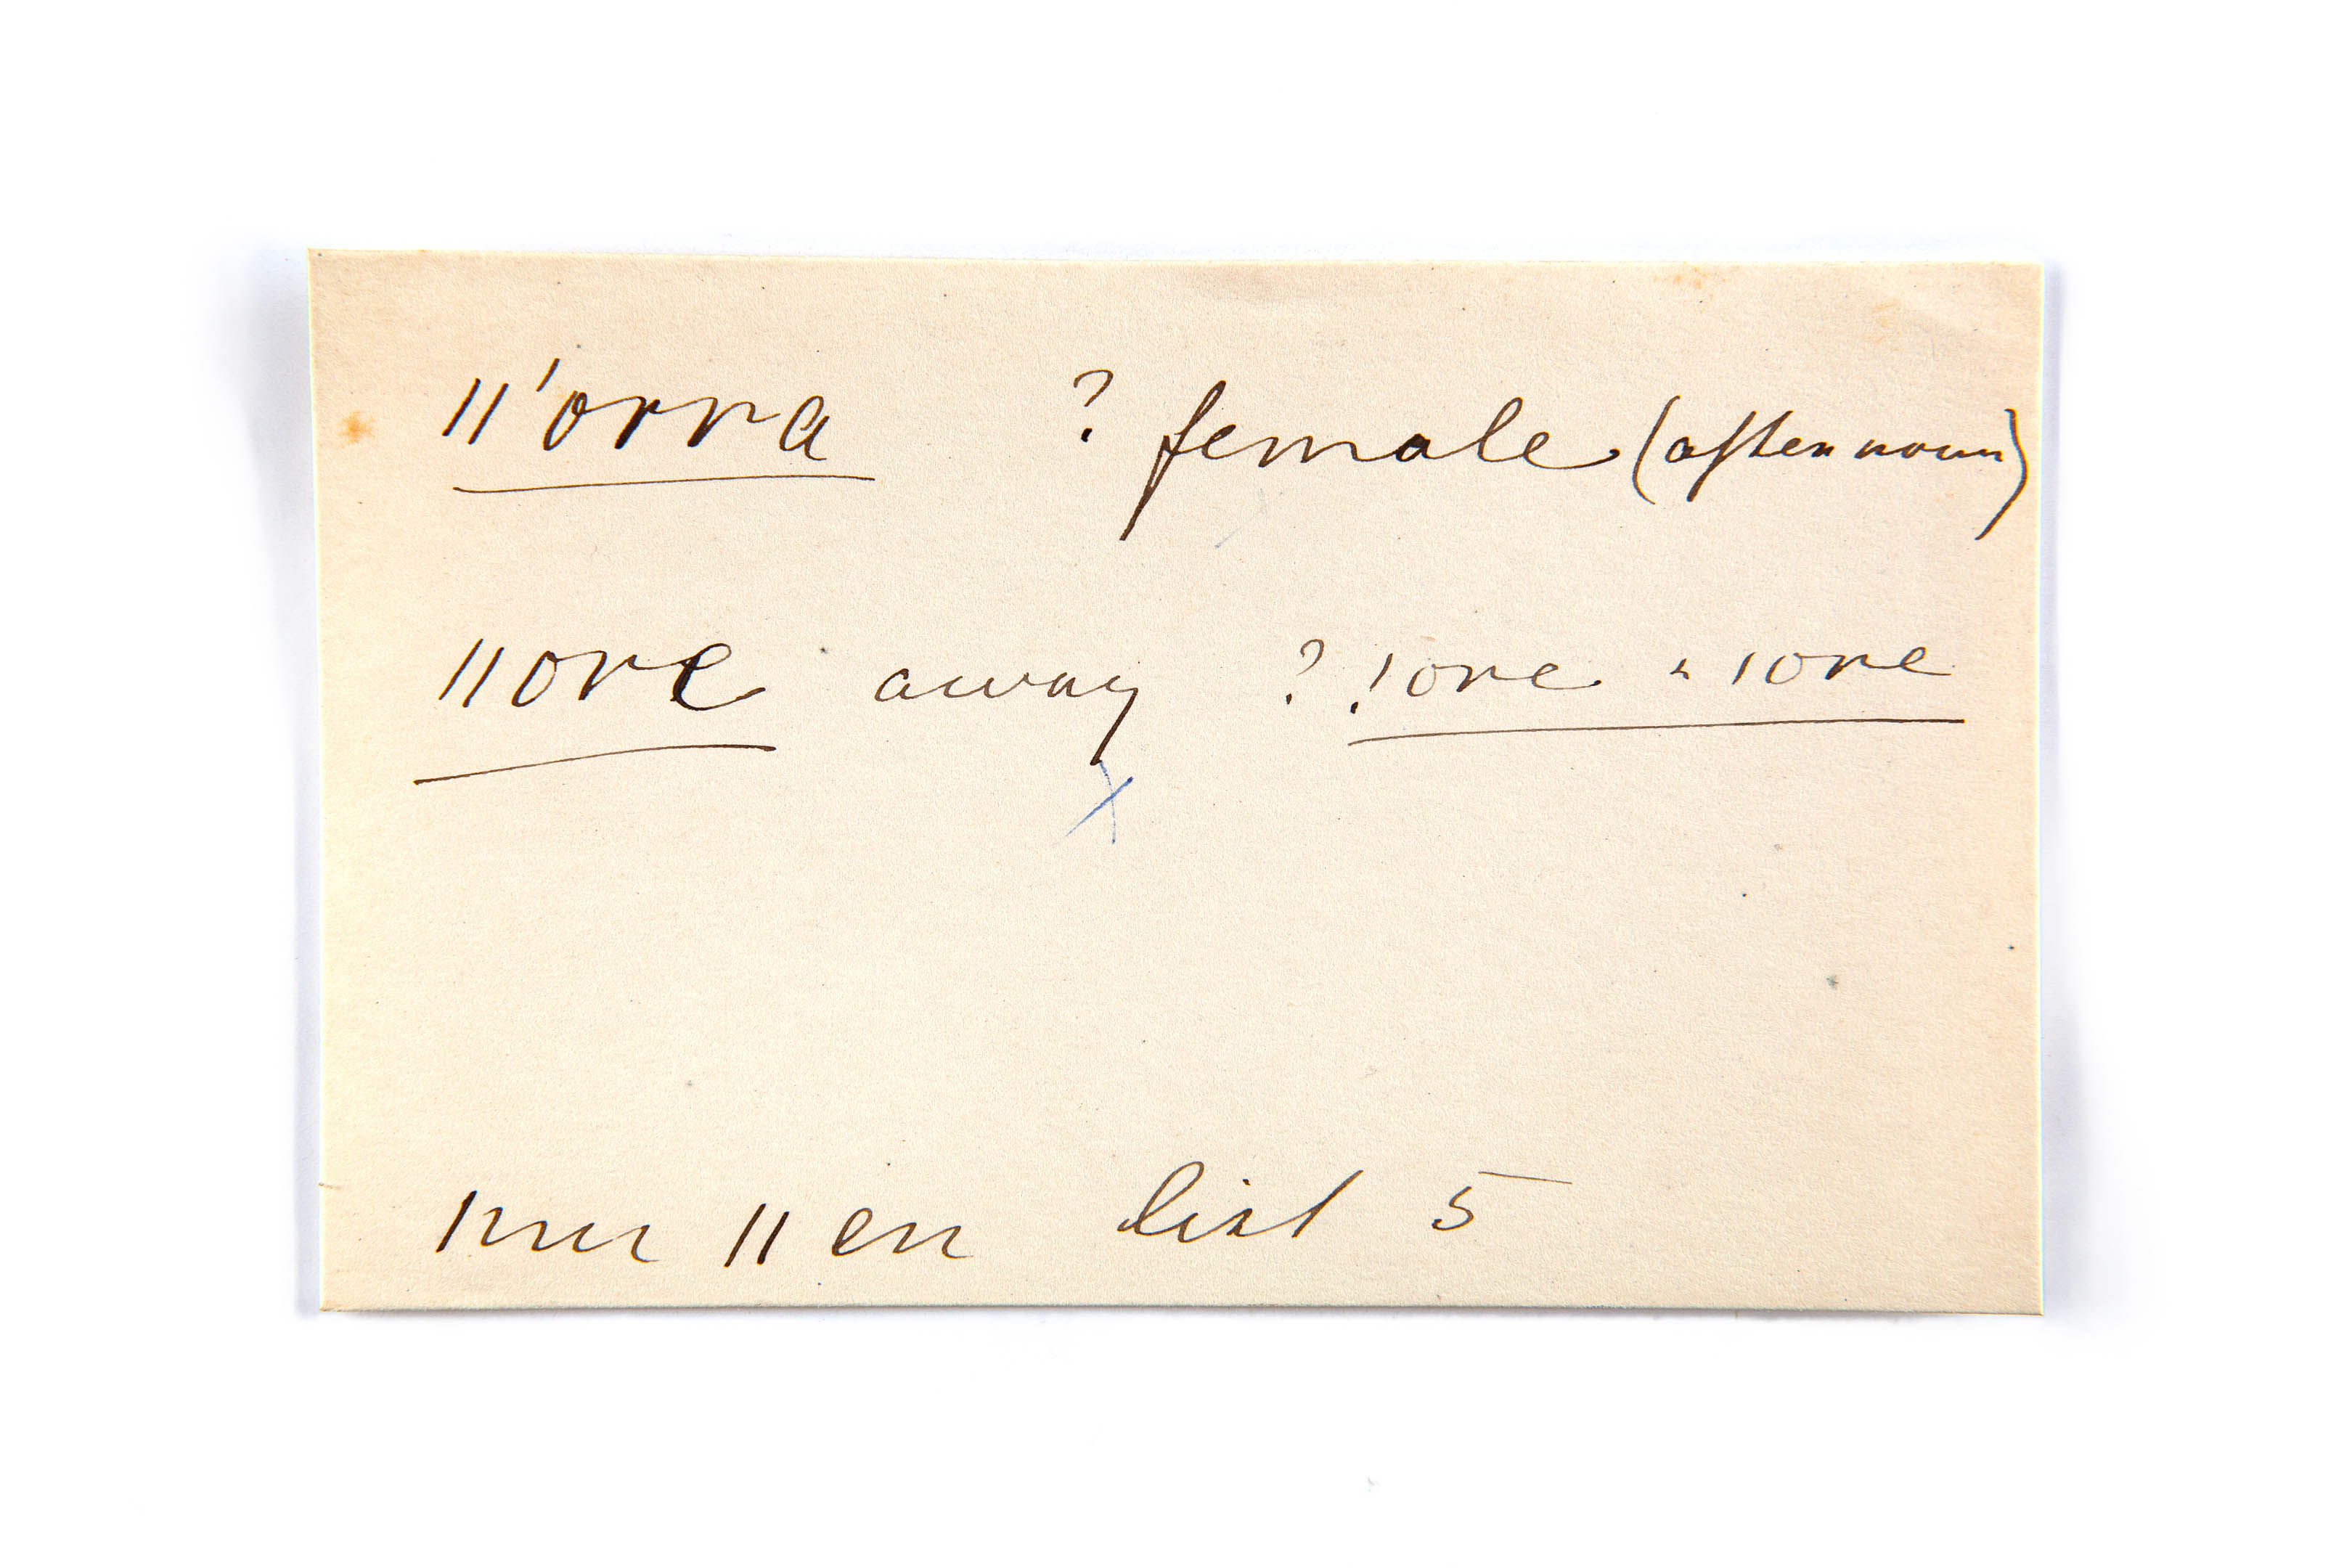 ǁ'orra ? female (after noun)
ǁore away ? !ore " ǀore
ǀnu ǁen list 5